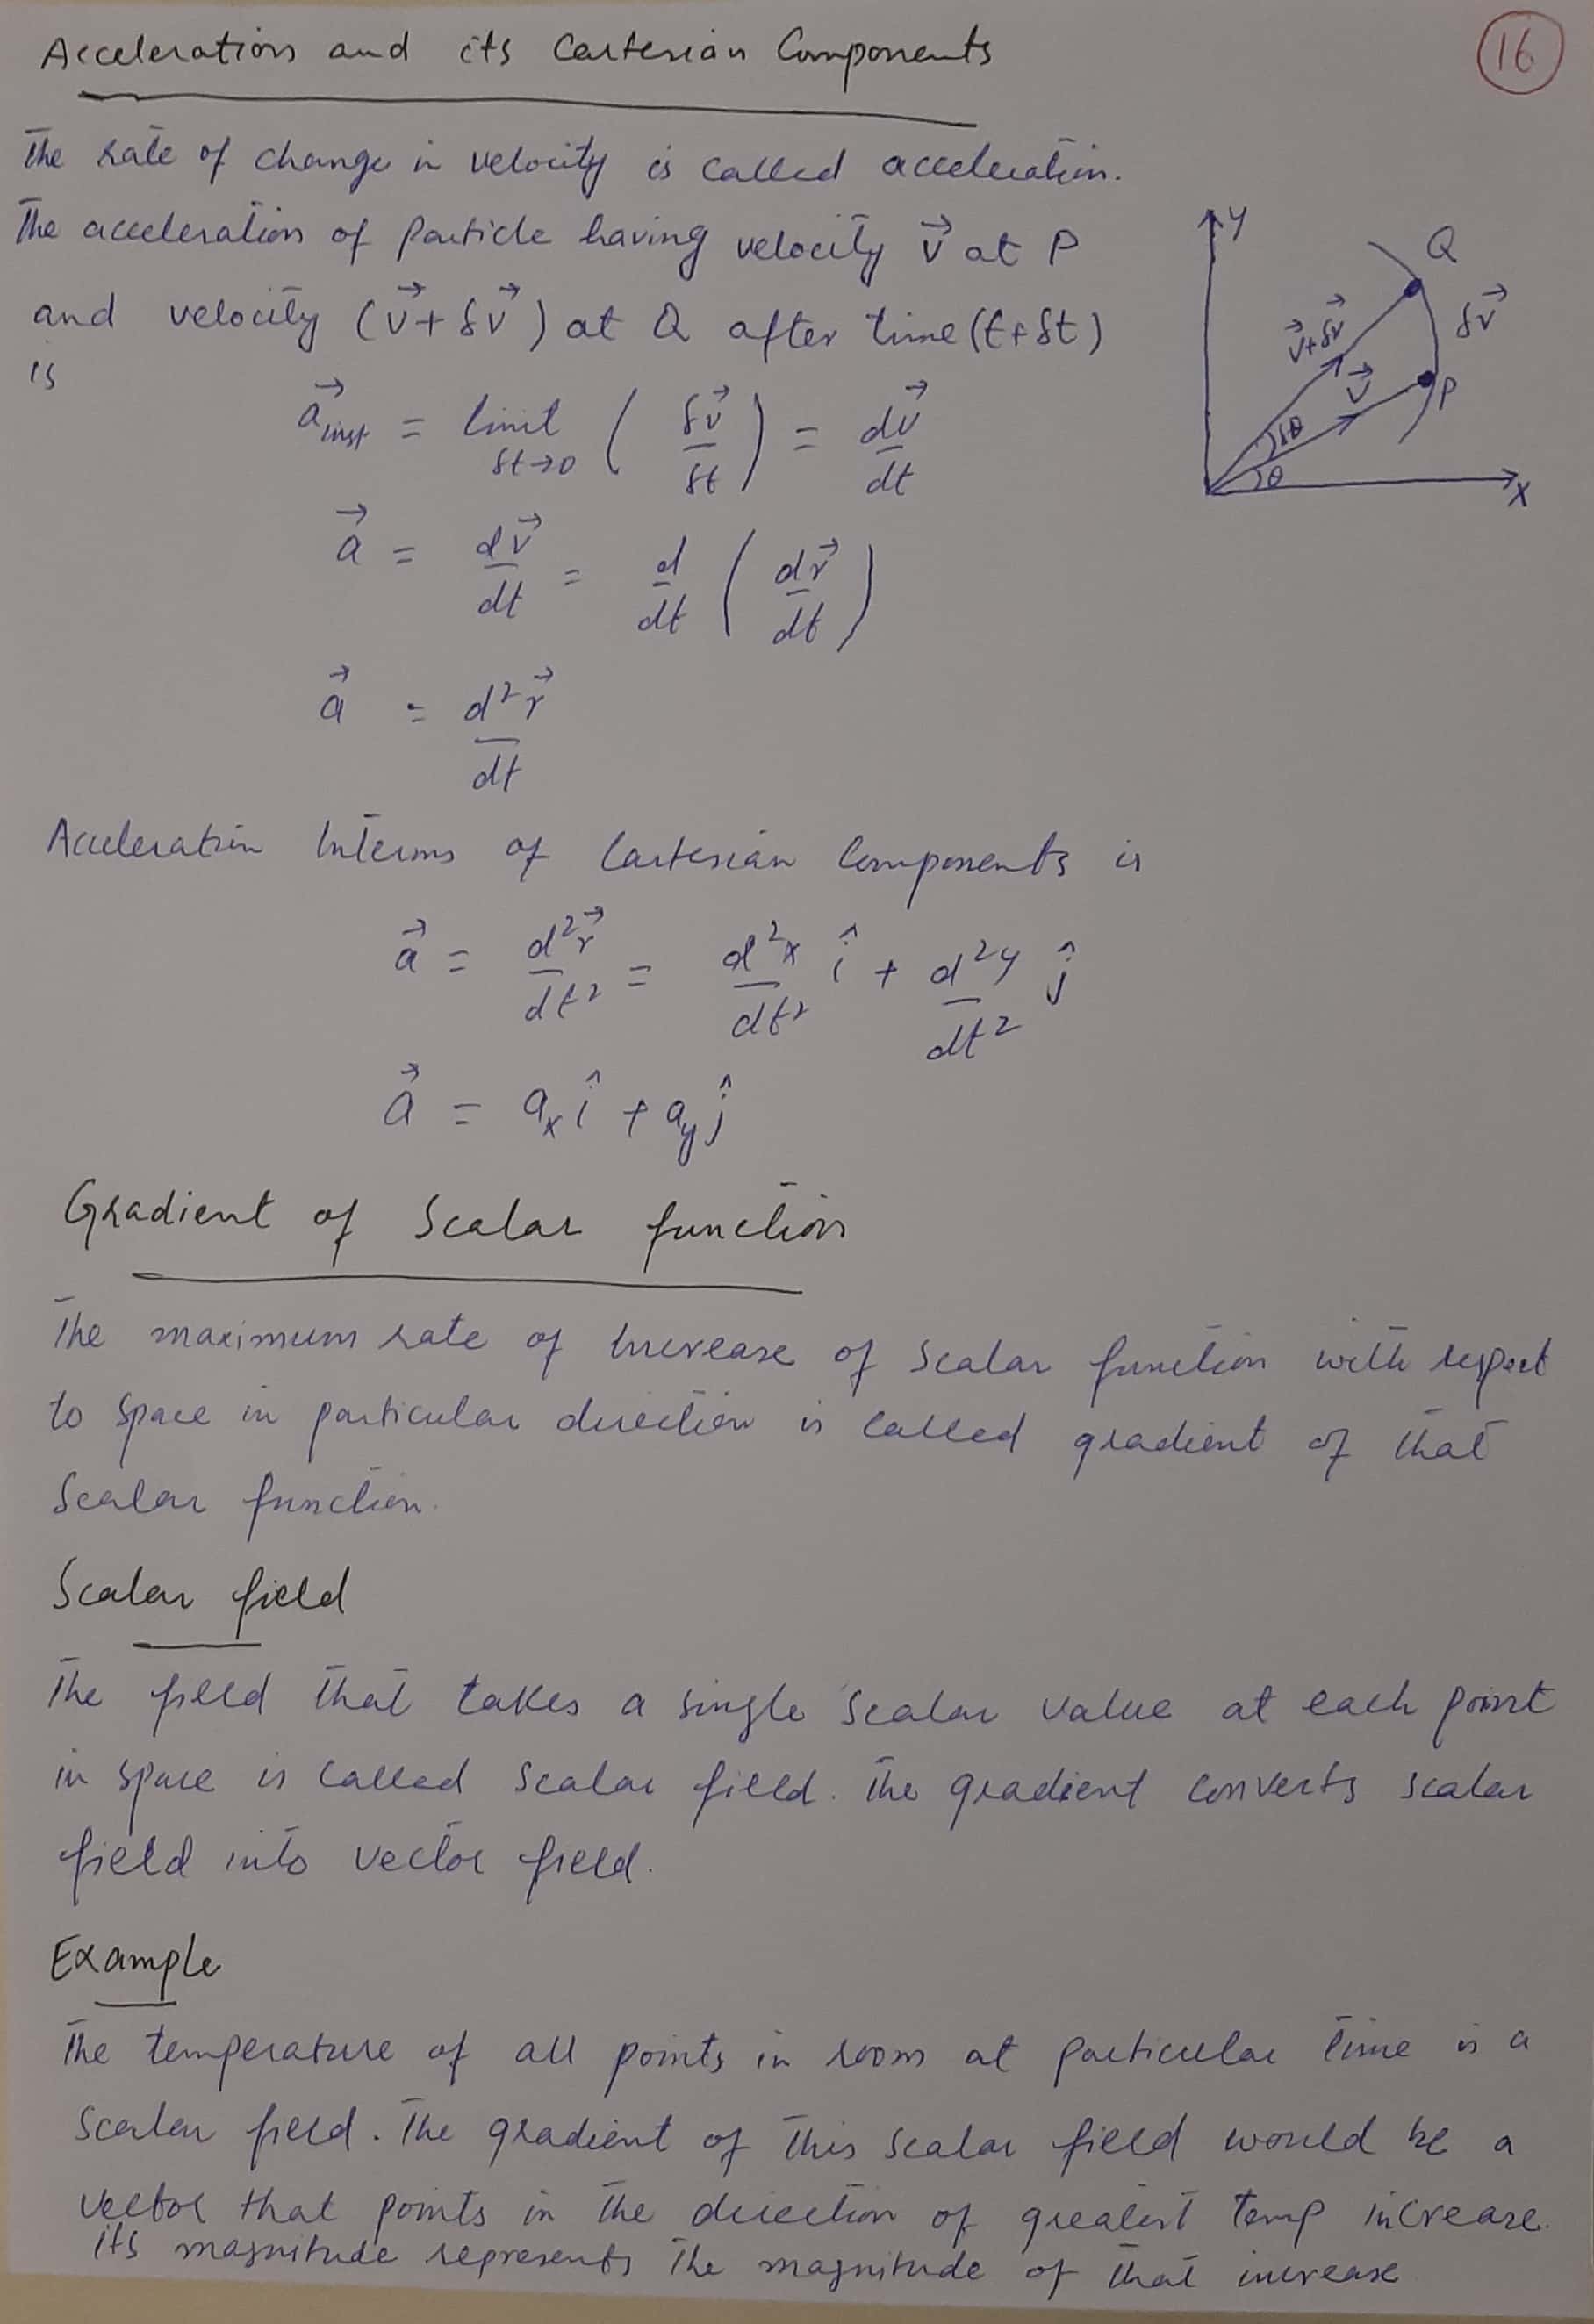 Acceleration and its Cartesian Components
16
The rate of change in velocity is called acceleration.
The acceleration of particle having velocity v⃗ at P
and velocity (v⃗+δv⃗) at Q after time (t+δt)
is
a⃗inst = limit δt→0 (δv⃗/δt) = dv⃗/dt
a⃗ = dv⃗/dt = d/dt (dr⃗/dt)
a⃗ = d²r⃗/dt
Y
Q
δv⃗
v⃗+δv⃗
v⃗
P
δθ
θ
X
Acceleration Interms of Cartesian Components is
a⃗ = d²r⃗/dt² = d²x/dt² î + d²y/dt² ĵ
a⃗ = aₓî + a_yĵ
Gradient of Scalar function
The maximum rate of increase of scalar function with respect
to space in particular direction is called gradient of that
scalar function.
Scalar field
The field that takes a single scalar value at each point
in space is called scalar field. The gradient converts scalar
field into vector field.
Example
The temperature of all points in room at particular time is a
scalar field. The gradient of this scalar field would be a
vector that points in the direction of greatest temp increase.
its magnitude represents the magnitude of that increase